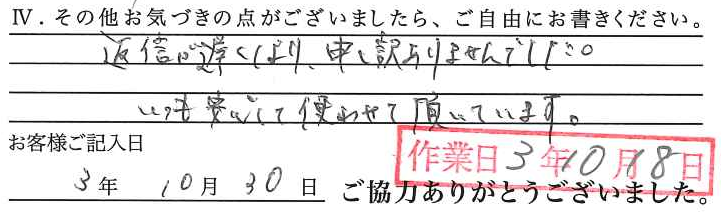 Ⅳ．その他お気づきの点がございましたら、ご自由にお書きください。
返信が遅くなり、申し訳ありませんでした。
いつも安心して使わせて頂いています。
お客様ご記入日
作業日 3年10月18日
3年 10月 30日 ご協力ありがとうございました。